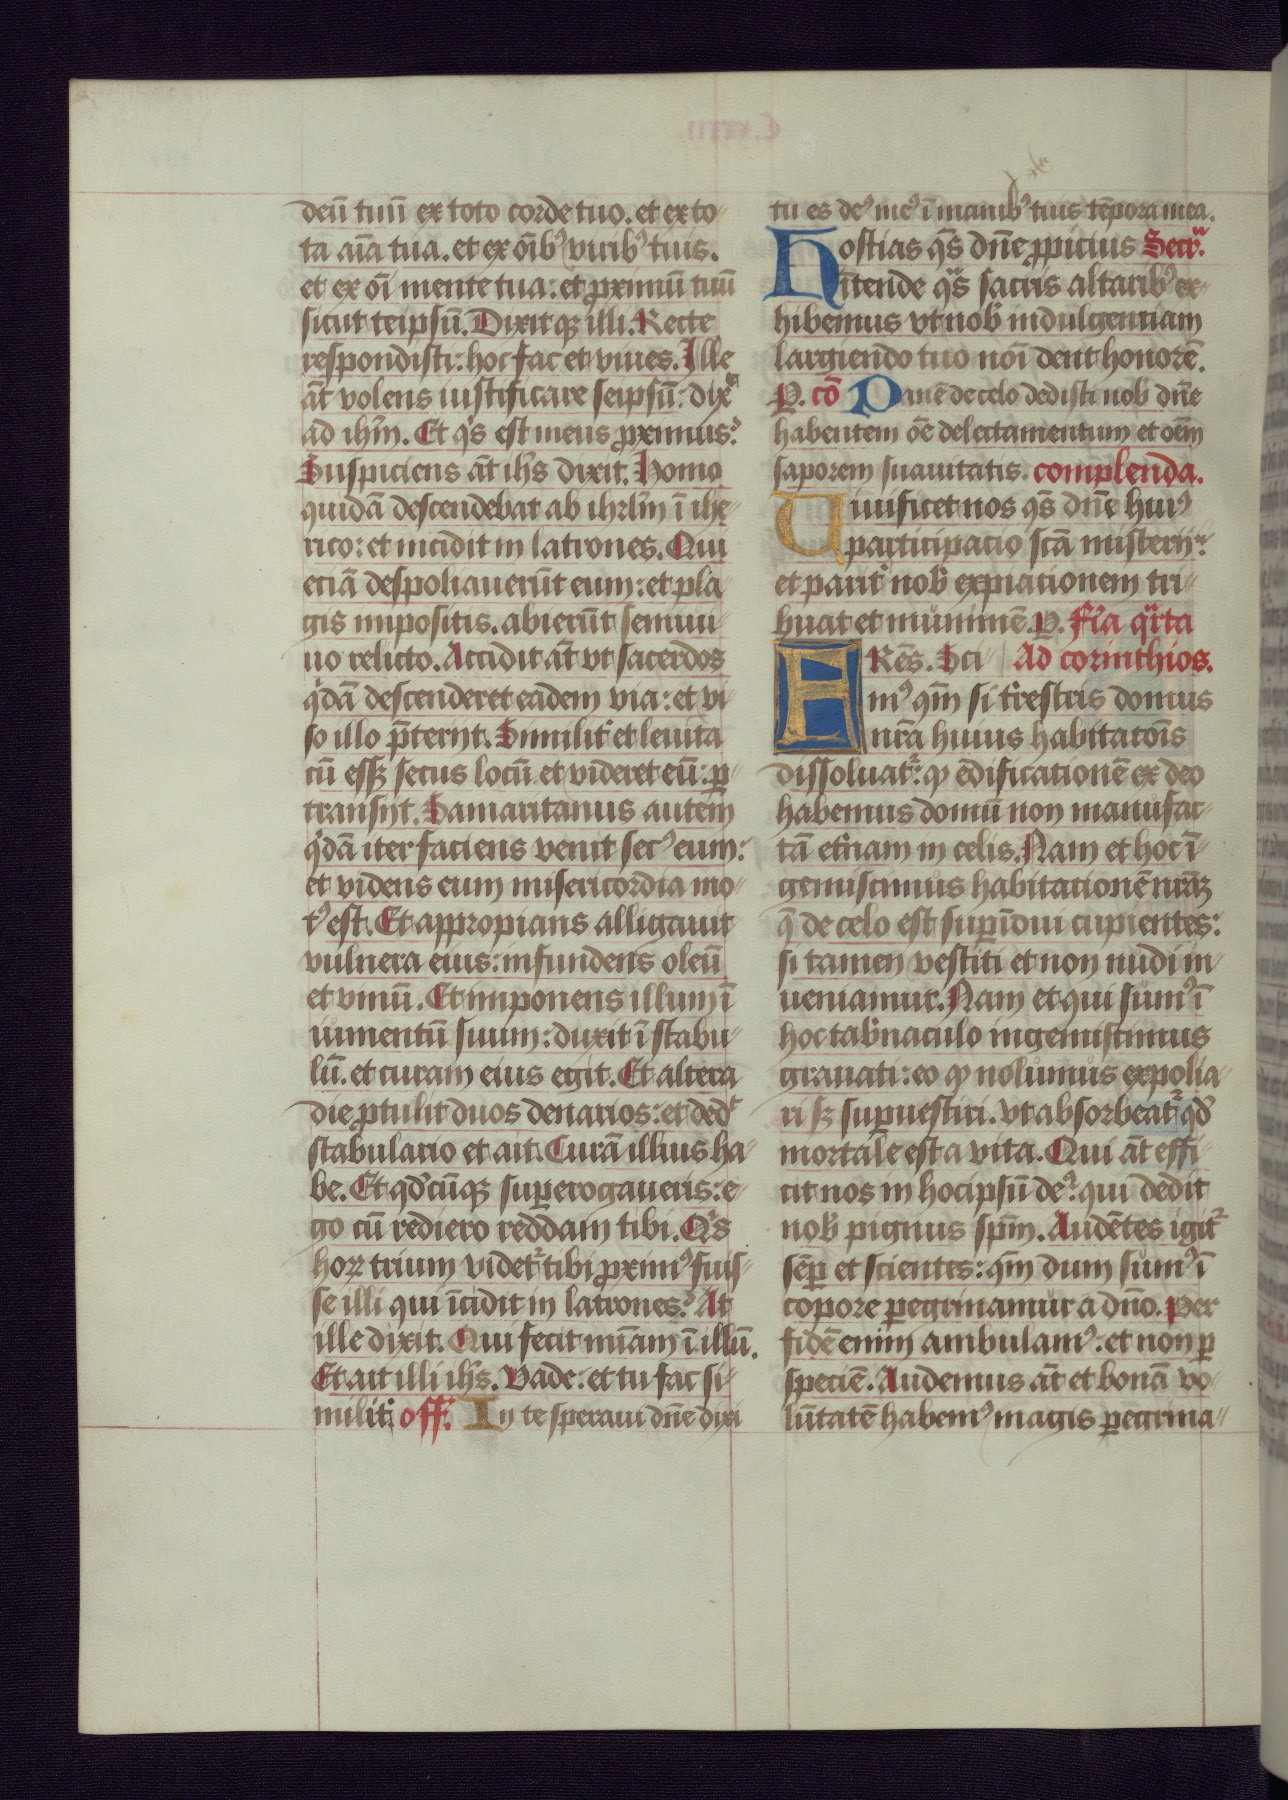 deū tuū ex toto corde tuo. et ex to-
ta aīa tua. et ex oīb⁹ virib⁹ tuis.
et ex oī mente tua: et ꝓximū tuū
sicut teipsū. Dixitqꝫ illi. Recte
respondisti: hoc fac et viues. Ille
āt volens iustificare seipsū: dixᵗ
ad ihm̄. Et qⁱs est meus ꝓximus?
Suspiciens āt ihs̄ dixit. Homo
quidā descendebat ab ihrlm̄ ī ihe-
rico: et incidit in latrones. Qui
eciā despoliauerūt eum: et pla-
gis impositis. abierūt semiui-
uo relicto. Accidit āt vt sacerdos
qⁱdā descenderet eadem via: et vi-
so illo p̄terijt. Similitˀ et leuita
cū esꝫ secus locū et videret eū: ꝑ-
transijt. Samaritanus autem
qⁱdā iter faciens venit sec⁹ eum:
et videns eum misericordia mo-
t⁹ est. Et appropians alligauit
vulnera eius: infundens oleū
et vinū. Et imponens illum ī
iumentū suum: duxit ī stabu-
lū. et curam eius egit. Et altera
die ꝓtulit duos denarios: et dedᵗ
stabulario et ait. Curā illius ha-
be. Et qd̄cūqꝫ superogaueris: e-
go cū rediero reddam tibi. Qⁱs
hoꝝ trium videtˀ tibi ꝓxim⁹ fuis-
se illi qui īcidit in latrones? At
ille dixit. Qui fecit mīam ī illū.
Et ait illi ihs̄. Vade: et tu fac si-
militˀ. off. In te speraui dn̄e dixi
tu es de⁹ me⁹ ī manib⁹ tuis tēpora mea.
Hostias qs̄ dn̄e ꝓpicius Secrᵃ.
ītende qᵃs sacris altarib⁹ ex-
hibemus vt nob̄ indulgentiam
largiendo tuo noī dent honorē.
P. cō Panē de celo dedisti nob̄ dn̄e
habentem oē delectamentum et oēm
saporem suauitatis. complenda.
Viuificet nos qs̄ dn̄e hui⁹
participacio scā misterijˀ:
et paritˀ nob̄ expiationem tri-
buat et munimē. P. Fīa qᵃrta
FRēs. Sci- Ad corinthios.
m⁹ qm̄ si trˀestris domus
nrā huius habitatoīs
dissoluatˀ: qꝫ edificationē ex deo
habemus domū non manufac-
tā etˀnam in celis. Nam et hoc ī-
gemiscimus habitationē nrāꝫ
q̄ de celo est suꝑīdui cupientes:
si tamen vestiti et non nudi in-
ueniamur. Nam et qui sum⁹ ī
hoc tabˀnaculo ingemiscimus
grauati: eo qꝫ nolumus expolia-
ri sꝫ suꝑuestiri. vt absorbeatˀ qd̄
mortale est a vita. Qui āt effi-
cit nos in hocipsū de⁹: qui dedit
nob̄ pignus spm̄. Audētes igitˀ
sēꝑ et scientes: qm̄ dum sum⁹ ī
copore ꝑegrinamur a dn̄o. Per
fidē enim ambulam⁹: et non ꝑ
speciē. Audemus āt et bonā vo-
lūtatē habem⁹ magis ꝑegrina-